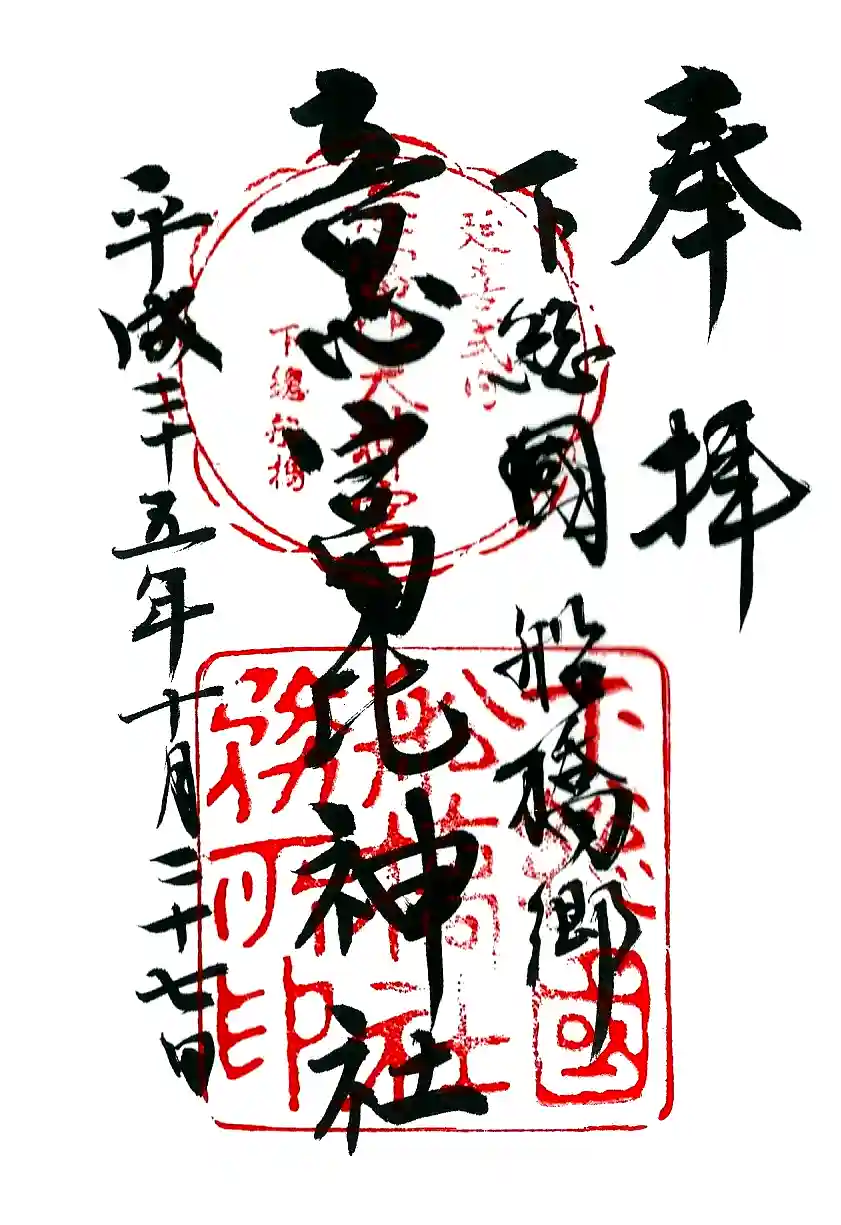 奉拝
下総國船橋郷
意富比神社
平成二十五年十月二十七日
延喜式内
下總船橋
下總國
務所印